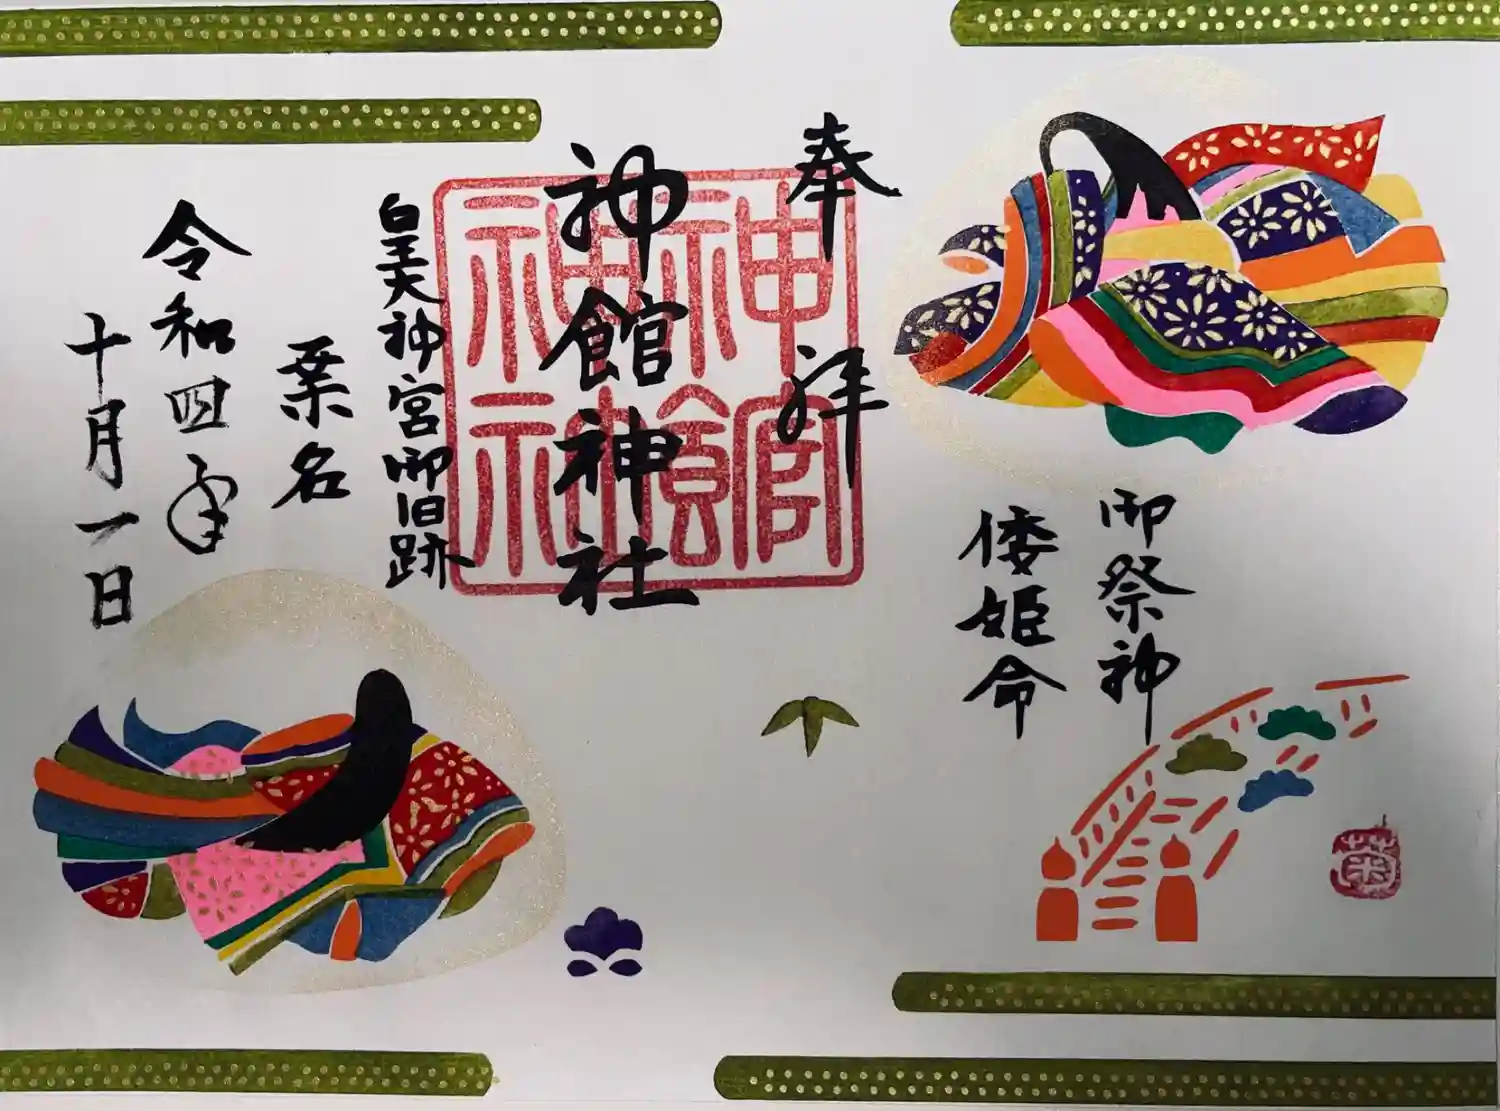 御祭神
倭姫命
奉拝
神館神社
神館
神社
皇大神宮御旧跡
桑名
令和四年
十月一日